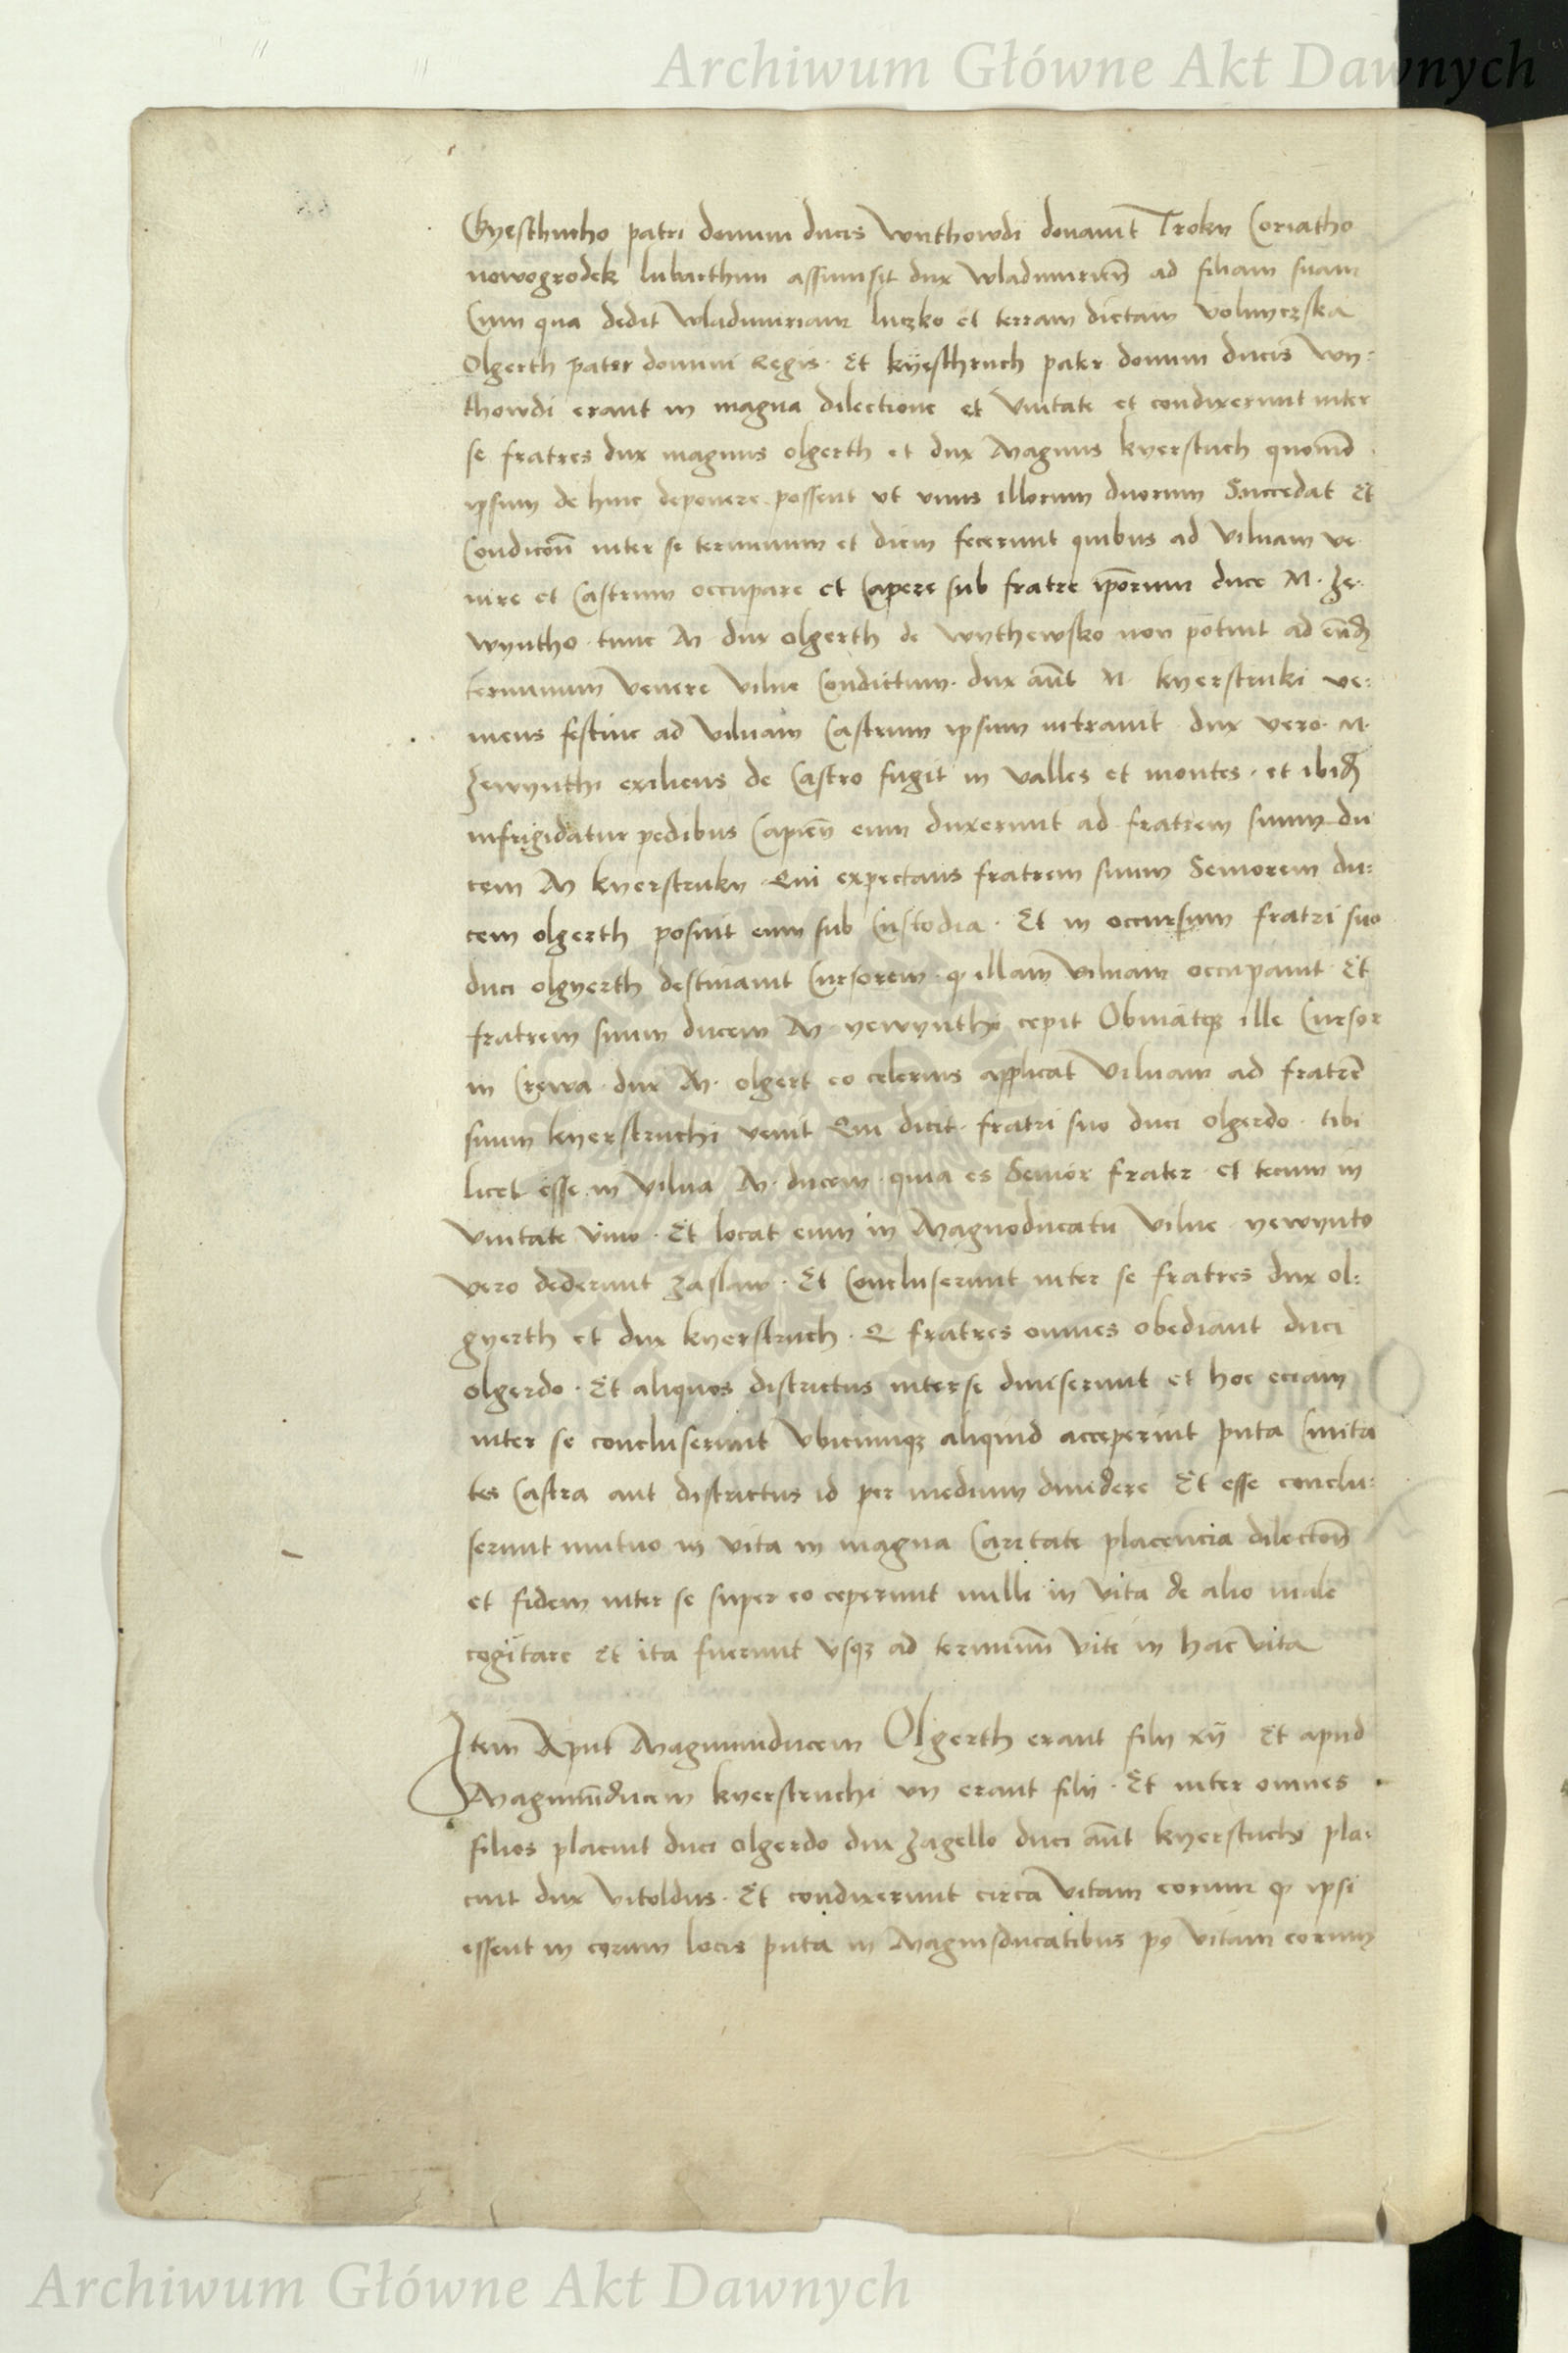 Archiwum Główne Akt Dawnych
Gyesthutho patri domini ducis Wythowdi donavit Troky Coriatho
nowogrodek lubarthum assumsit dux Wladimirien̄ ad filiam suam
Cum qua dedit Wladimiriam luczko et terram dictam Volinczska
Olgerth pater domini Regis. Et kÿesthruch pater domini ducis Wy-
thowdi erant in magna dilectione et Unitate et condixerunt inter
se fratres dux magnus olgerth et dux Magnus kyerstuch quomō
ipsum de hinc deponere possent ut unus illorum duorum Succedat Et
Condicōn̄ inter se terminum et diem fecerunt quibus ad Vilnam ve
nire et Castrum occupare et Capere sub fratre ip̄orum duce M. Je.
wyntho. tunc M dux olgerth de Wythewsko non potuit ad eūd
terminum Venire Vilne Condictum. dux aūt M. kyerstruki ve:
niens festine ad Vilnam Castrum ipsum intravit. dux vero. M.
Jewynthi exiliens de Castro fugit in Valles et montes. et ibid
infrigidatur pedibus Capien̄ eum duxerunt ad fratrem suum du
cem M kyerstruky. Qui expectans fratrem suum Seniorem du:
cem olgerth posuit eum sub Custodia. Et in occursum fratri suo
duci olgyerth destinavit Cursorem. q illam Vilnam occupavit. Et
fratrem suum ducem M yewynthy cepit Obuiatq; ille Cursor
in Crewa. dux M. olgert eo celerius applicat Vilnam ad fratrē
suum kyerstruthi venit Qui dicit. fratri suo duci olgerdo. tibi
licet esse in Vilna M. ducem. quia es Senior frater. et tecum in
Unitate Vivo. Et locat eum in Magnoducatu Vilne. yewynto
Vero dederunt Zaslaw. Et Concluserunt inter se fratres dux ol:
gyerth et dux kyerstruch. Q fratres omnes obediant duci
olgerdo. Et aliquos districtus interse diuiserunt et hoc eciam
inter se concluserunt Ubicumq; aliquid acceperint puta Ciuita
tes Castra aut districtus id per medium diuidere Et esse conclu:
serunt mutuo in vita in magna Caritate placencia dilectōn̄
et fidem inter se super eo ceperunt nulli in Vita de alio male
cogitare Et ita fuerunt Usq; ad terminū Vite in hac Vita
Item Aput Magnumducem Olgerth erant filij xij Et apud
Magnumducem kyerstruthi vij erant filij. Et inter omnes
filios placuit duci olgerdo dux Jagello duci aūt kyerstuthi pla:
cuit dux Vitoldus. Et condixerunt circa Vitam eorum q ipsi
essent in eorum locis puta in Magnisducatibus po Vitam eorum
Archiwum Główne Akt Dawnych